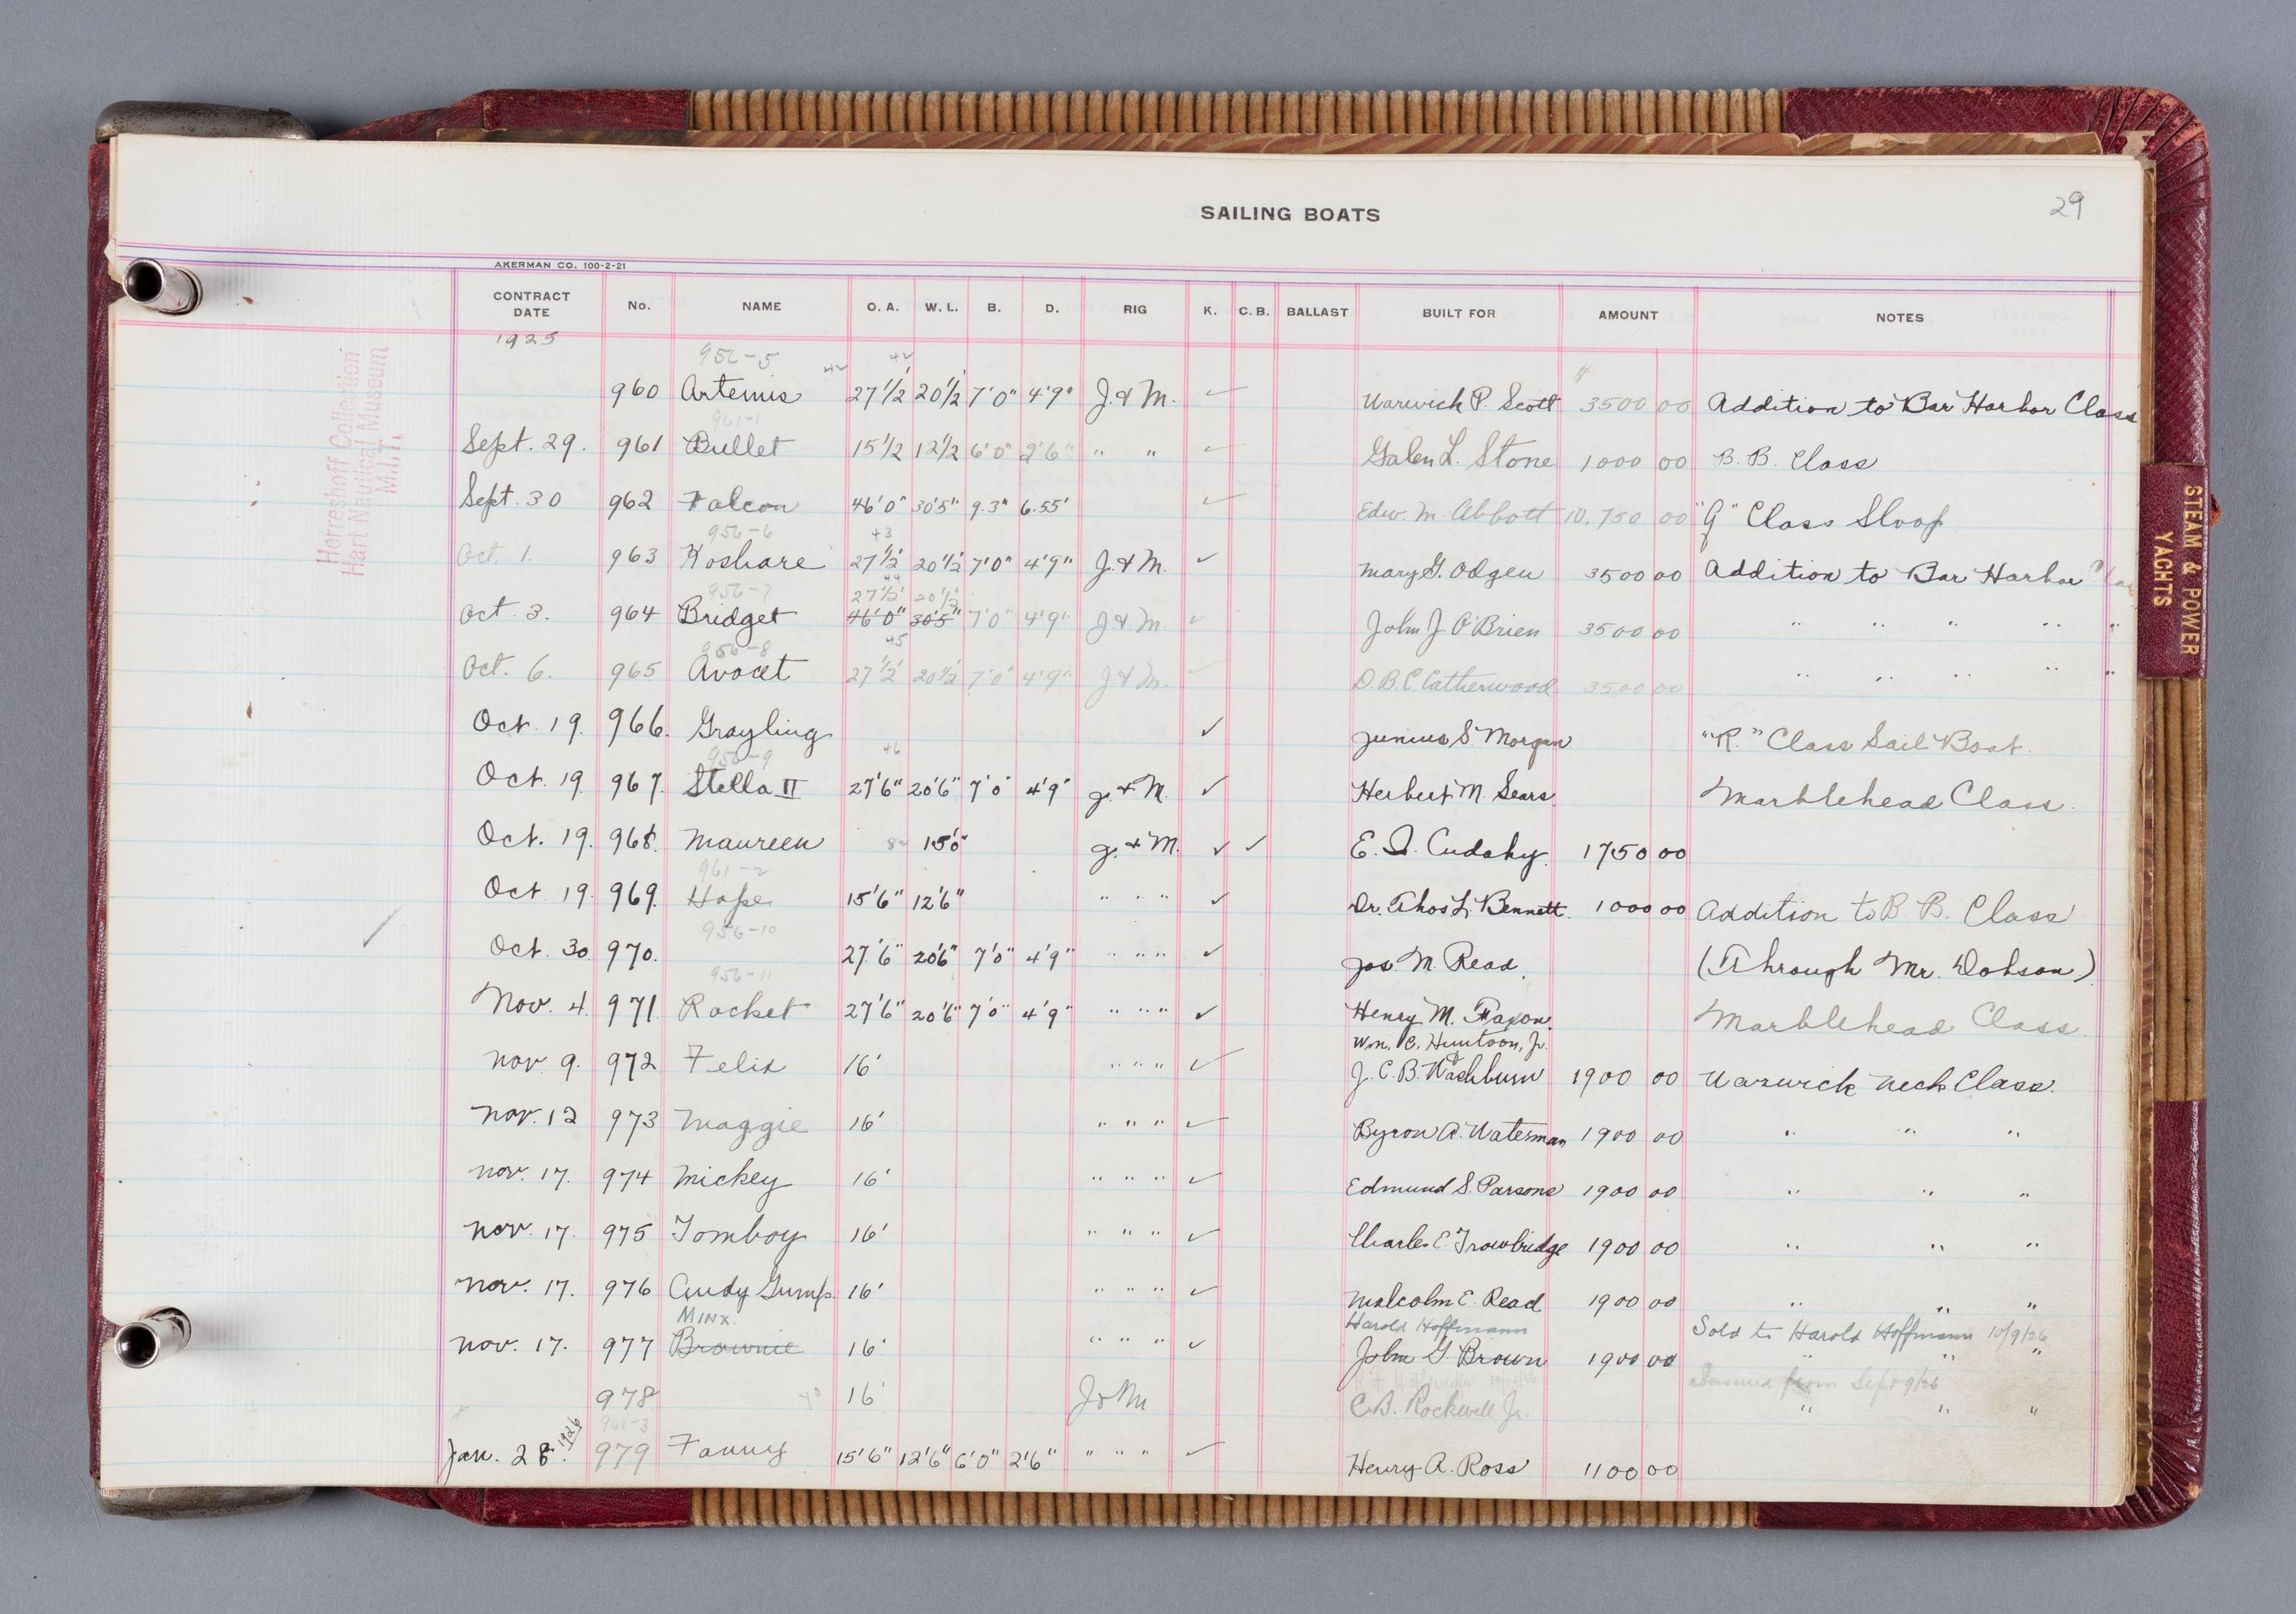 SAILING BOATS
29
AKERMAN CO. 100-2-21
CONTRACT DATE No. NAME O. A. W. L. B. D. RIG K. C. B. BALLAST BUILT FOR AMOUNT NOTES
1925
956-5 42
960 Artemis 27'1/2 20'1/2 7'0" 4'9" J. & M. ✓ Warwick P. Scott 3500 00 Addition to Bar Harbor Class
961-1
Sept. 29. 961 Bullet 15'1/2 12'1/2 6'0" 2'6" " " ✓ Galen L. Stone 1000 00 B. B. Class
Sept. 30 962 Falcon 46'0" 30'5" 9.3" 6.55' ✓ Edw. M. Abbott 10,750 00 "G" Class Sloop
956-6 43
Oct. 1. 963 Koshare 27'1/2' 20'1/2 7'0" 4'9" J. & M. ✓ Mary G. Odgen 3500 00 Addition to Bar Harbor Class
956-7 44
27'1/2' 20'1/2
Oct. 3. 964 Bridget 46'0" 30'5" 7'0" 4'9" J & M ✓ John J. O'Brien 3500 00 " " " " "
956-8 45
Oct. 6. 965 Avocet 27'1/2' 20'1/2 7'0" 4'9" J & M. ✓ D. B. C. Catherwood 3500 00 " " " " "
Oct. 19. 966. Grayling ✓ Junius S. Morgan "R." Class Sail Boat.
956-9 46
Oct. 19. 967. Stella II 27'6" 20'6" 7'0" 4'9" J. & M. ✓ Herbert M. Sears. Marblehead Class.
Oct. 19. 968. Maureen 15'0" J. & M. ✓ ✓ E. I. Cudahy. 1750 00
961-2
Oct. 19. 969. Hope 15'6" 12'6" " " " ✓ Dr. Thos L. Bennett. 1000 00 Addition to B. B. Class
956-10
Oct. 30. 970. 27'6" 20'6" 7'0" 4'9" " " " ✓ Jas. M. Read. (Through Mr. Dobson)
956-11
Nov. 4. 971 Rocket 27'6" 20'6" 7'0" 4'9" " " " ✓ Henry M. Faxon. Marblehead Class.
Wm. C. Huntoon, Jr.
Nov. 9. 972 Felix 16' " " " ✓ J. C. B. Washburn 1900 00 Warwick Neck Class.
Nov. 12 973 Maggie 16' " " " ✓ Byron A. Waterman 1900 00 " " "
Nov. 17. 974 Mickey 16' " " " ✓ Edmund S. Parsons 1900 00 " " "
Nov. 17. 975 Tomboy 16' " " " ✓ Charles E. Trowbridge 1900 00 " " "
Nov. 17. 976 Andy Gump. 16' " " " ✓ Malcolm E. Read 1900 00 " " "
MINX. Harold Hoffmann Sold to Harold Hoffmann 10/9/26
Nov. 17. 977 Brownie 16' " " " ✓ John G. Brown 1900 00 " " "
from Sept 9/26
978 16' J & M C. B. Rockwell Jr. " " "
961-3
Jan. 28. 1926 979 Fanny 15'6" 12'6" 6'0" 2'6" " " " ✓ Henry A. Ross 1100 00
Herreshoff Collection
Hart Nautical Museum
M.I.T.
STEAM & POWER
YACHTS